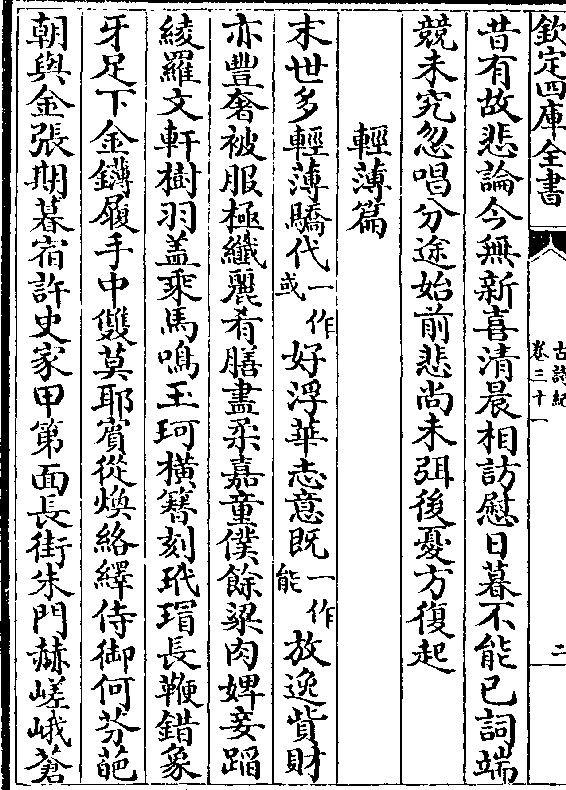 欽定四庫全書
古詩紀
卷三十一
二
昔有故悲論今無新喜清晨相訪慰日暮不能已詞端
競未究忽唱分途始前悲尚未弭後憂方復起
輕薄篇
末世多輕薄驕代一作或好浮華志意既一作能放逸貲財
亦豐奢被服極纖麗肴膳盡柔嘉童僕餘梁肉婢妾蹈
綾羅文軒樹羽盖乘馬鳴玉珂橫簪刻玳瑁長鞭錯象
牙足下金鑮履手中雙莫耶賓從煥絡繹侍御何芬葩
朝與金張期暮宿許史家甲第面長街朱門赫嵯峨蒼